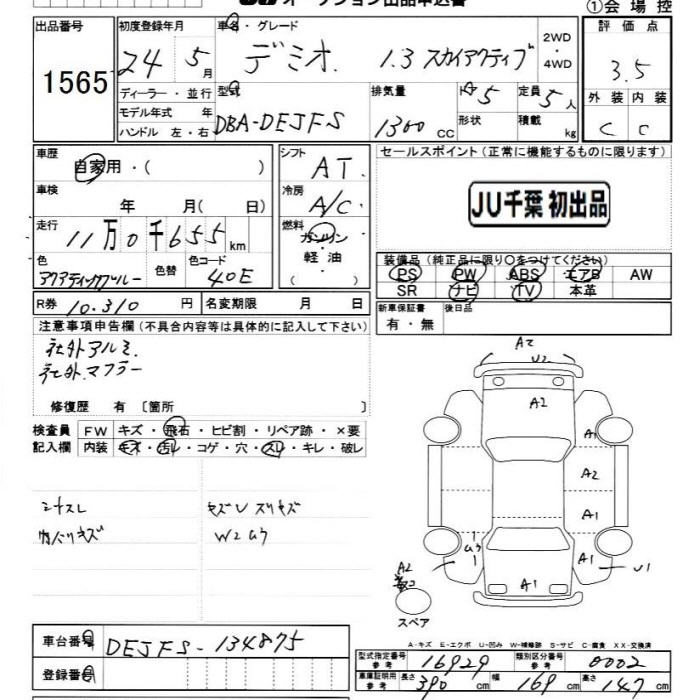 オークション出品申込書 ①会場控
出品番号 初度登録年月 車名・グレード 評価点
1565 24年5月 デミオ 1.3 スカイアクティブ 2WD・4WD 3.5
ディーラー・並行 型式 排気量 ドア 5 定員 5人 外装 内装
モデル年式 年 DBA-DEJFS 1300cc 形状 積載 kg C C
ハンドル 左・右
車歴 シフト セールスポイント(正常に機能するものに限ります)
自家用・( ) AT
車検 冷房 JU千葉 初出品
年 月( 日) A/C
走行 燃料
11万0千655km ガソリン・軽油
色 色替 色コード ( ) 装備品(純正品に限り○をつけてください)
アクアティックブルー 40E PS PW ABS エアB AW
R券 10.310円 名変期限 月 日 SR ナビ TV 本革
注意事項申告欄(不具合内容等は具体的に記入して下さい) 新車保証書 後日品
社外アルミ. 有・無
社外.マフラー
修復歴 有 〔箇所 〕
検査員 FW キズ・飛石・ヒビ割・リペア跡・×要
記入欄 内装 キズ・汚レ・コゲ・穴・スレ・キレ・破レ
A2
U2
A2
A1
A2
A1
シートスレ キズU スリキズ
内バリキズ W2 U3
U3 A1 U1
A2
A1
スペア
車台番号 DEJFS-134875
A-キズ E-エクボ U-凹み W-補修跡 S-サビ C-腐食 XX-交換済
型式指定番号 参考 16929 類別区分番号 参考 0002
登録番号 車庫証明用 参考 長さ 390cm 幅 169cm 高さ 147cm